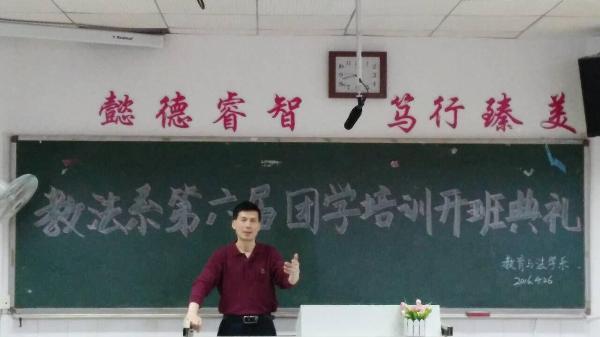 懿德睿智 笃行臻美
教法系第六届团学培训开班典礼
教育与法学系
2016.4.26